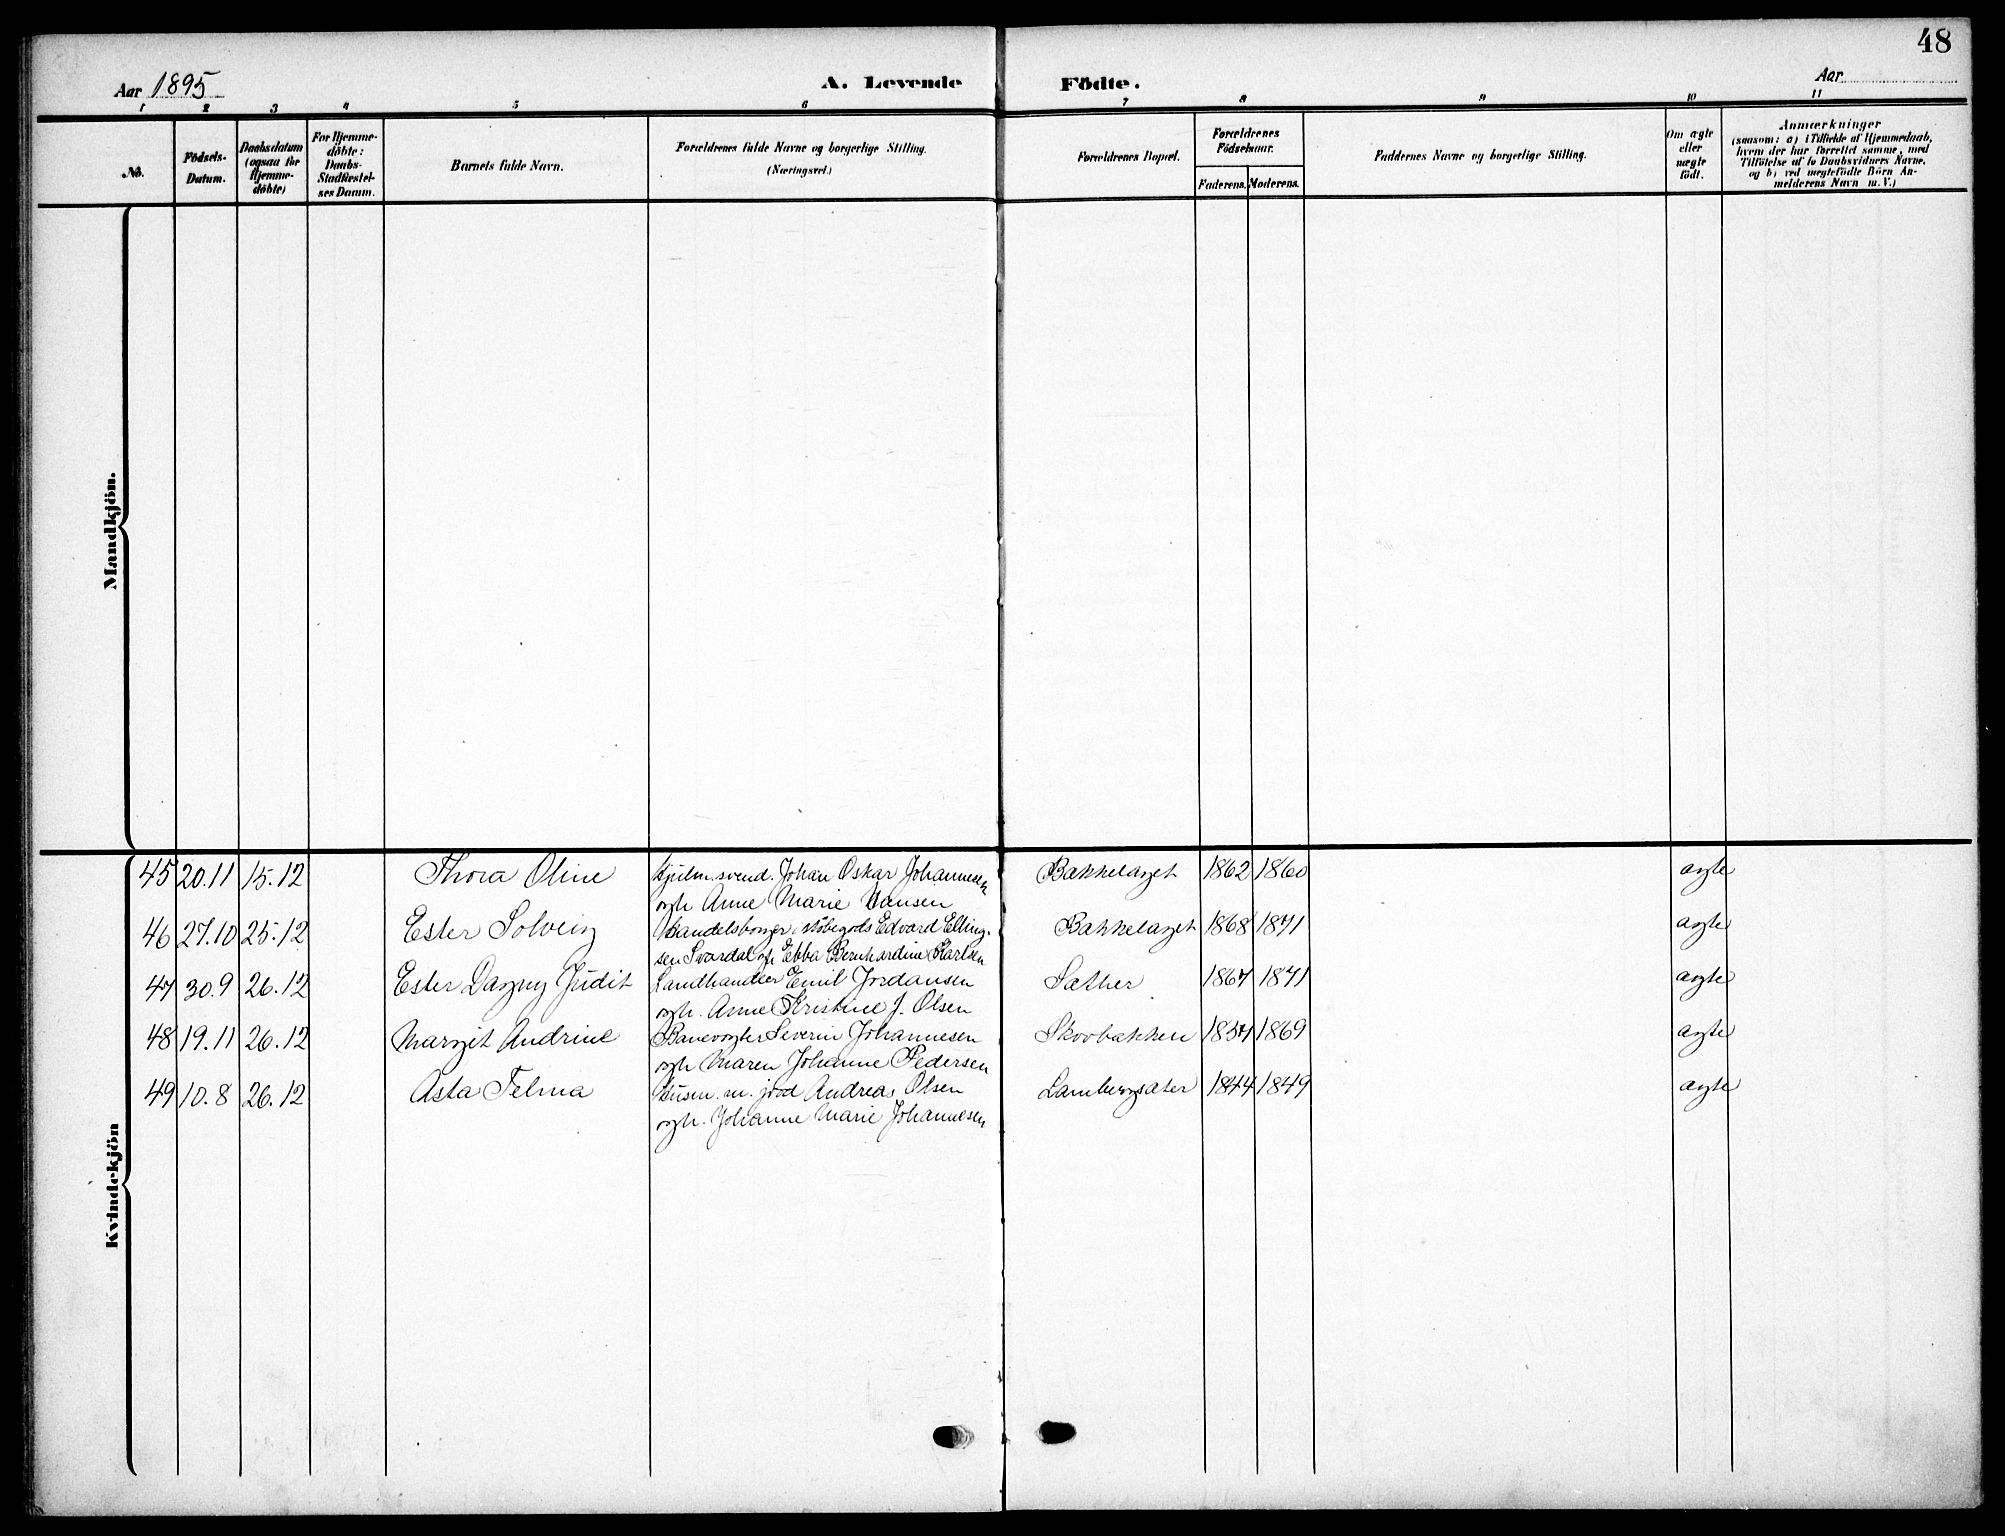 48
Aar 1895
A. Levende Födte.
Aar
1 2 3 4 5 6 7 8 9 10 11
No.
Födsels-Datum.
Daabsdatum (ogsaa for Hjemme-döbte)
For Hjemme-döbte: Daabs-Stadfæstel-ses Datum.
Barnets fulde Navn.
Forældrenes fulde Navne og borgerlige Stilling.
(Næringsvei.)
Forældrenes Bopæl.
Forældrenes Födselsaar.
Faderens. Moderens.
Faddernes Navne og borgerlige Stilling.
Om ægte eller uægte födt.
Anmærkninger
(saasom: a) i Tilfælde af Hjemmedaab,
hvem der har forrettet samme, med
Tilföielse af to Daabsvidners Navne,
og b) ved uægtefödte Börn An-
melderens Navn m. V.)
Mandkjön.
Kvindekjön
45 20.11 15.12 Thora Oline Hjulm.svend. Johan Oskar Johannesen Bakkelaget 1862 1860 ægte
ogh Anne Marie Hansen
46 27.10 25.12 Ester Solveig Handelsborger i støbegods Edvard Elling- Bakkelaget 1868 1871 ægte
sen Svardal ogh Ebba Bernhardine Karlsen
47 30.9 26.12 Ester Dagny Judit Landhandler Emil Jordansen Sæther 1867 1871 ægte
ogh. Anne Kristine J. Olsen
48 19.11 26.12 Margit Andrine Banevogter Severin Johannesen Skovbakken 1857 1869 ægte
ogh Maren Johanne Pedersen
49 10.8 26.12 Asta Telma Husm. m. jord Andreas Olsen Lambergsæter 1844 1849 ægte
ogh. Johanne Marie Johannesen